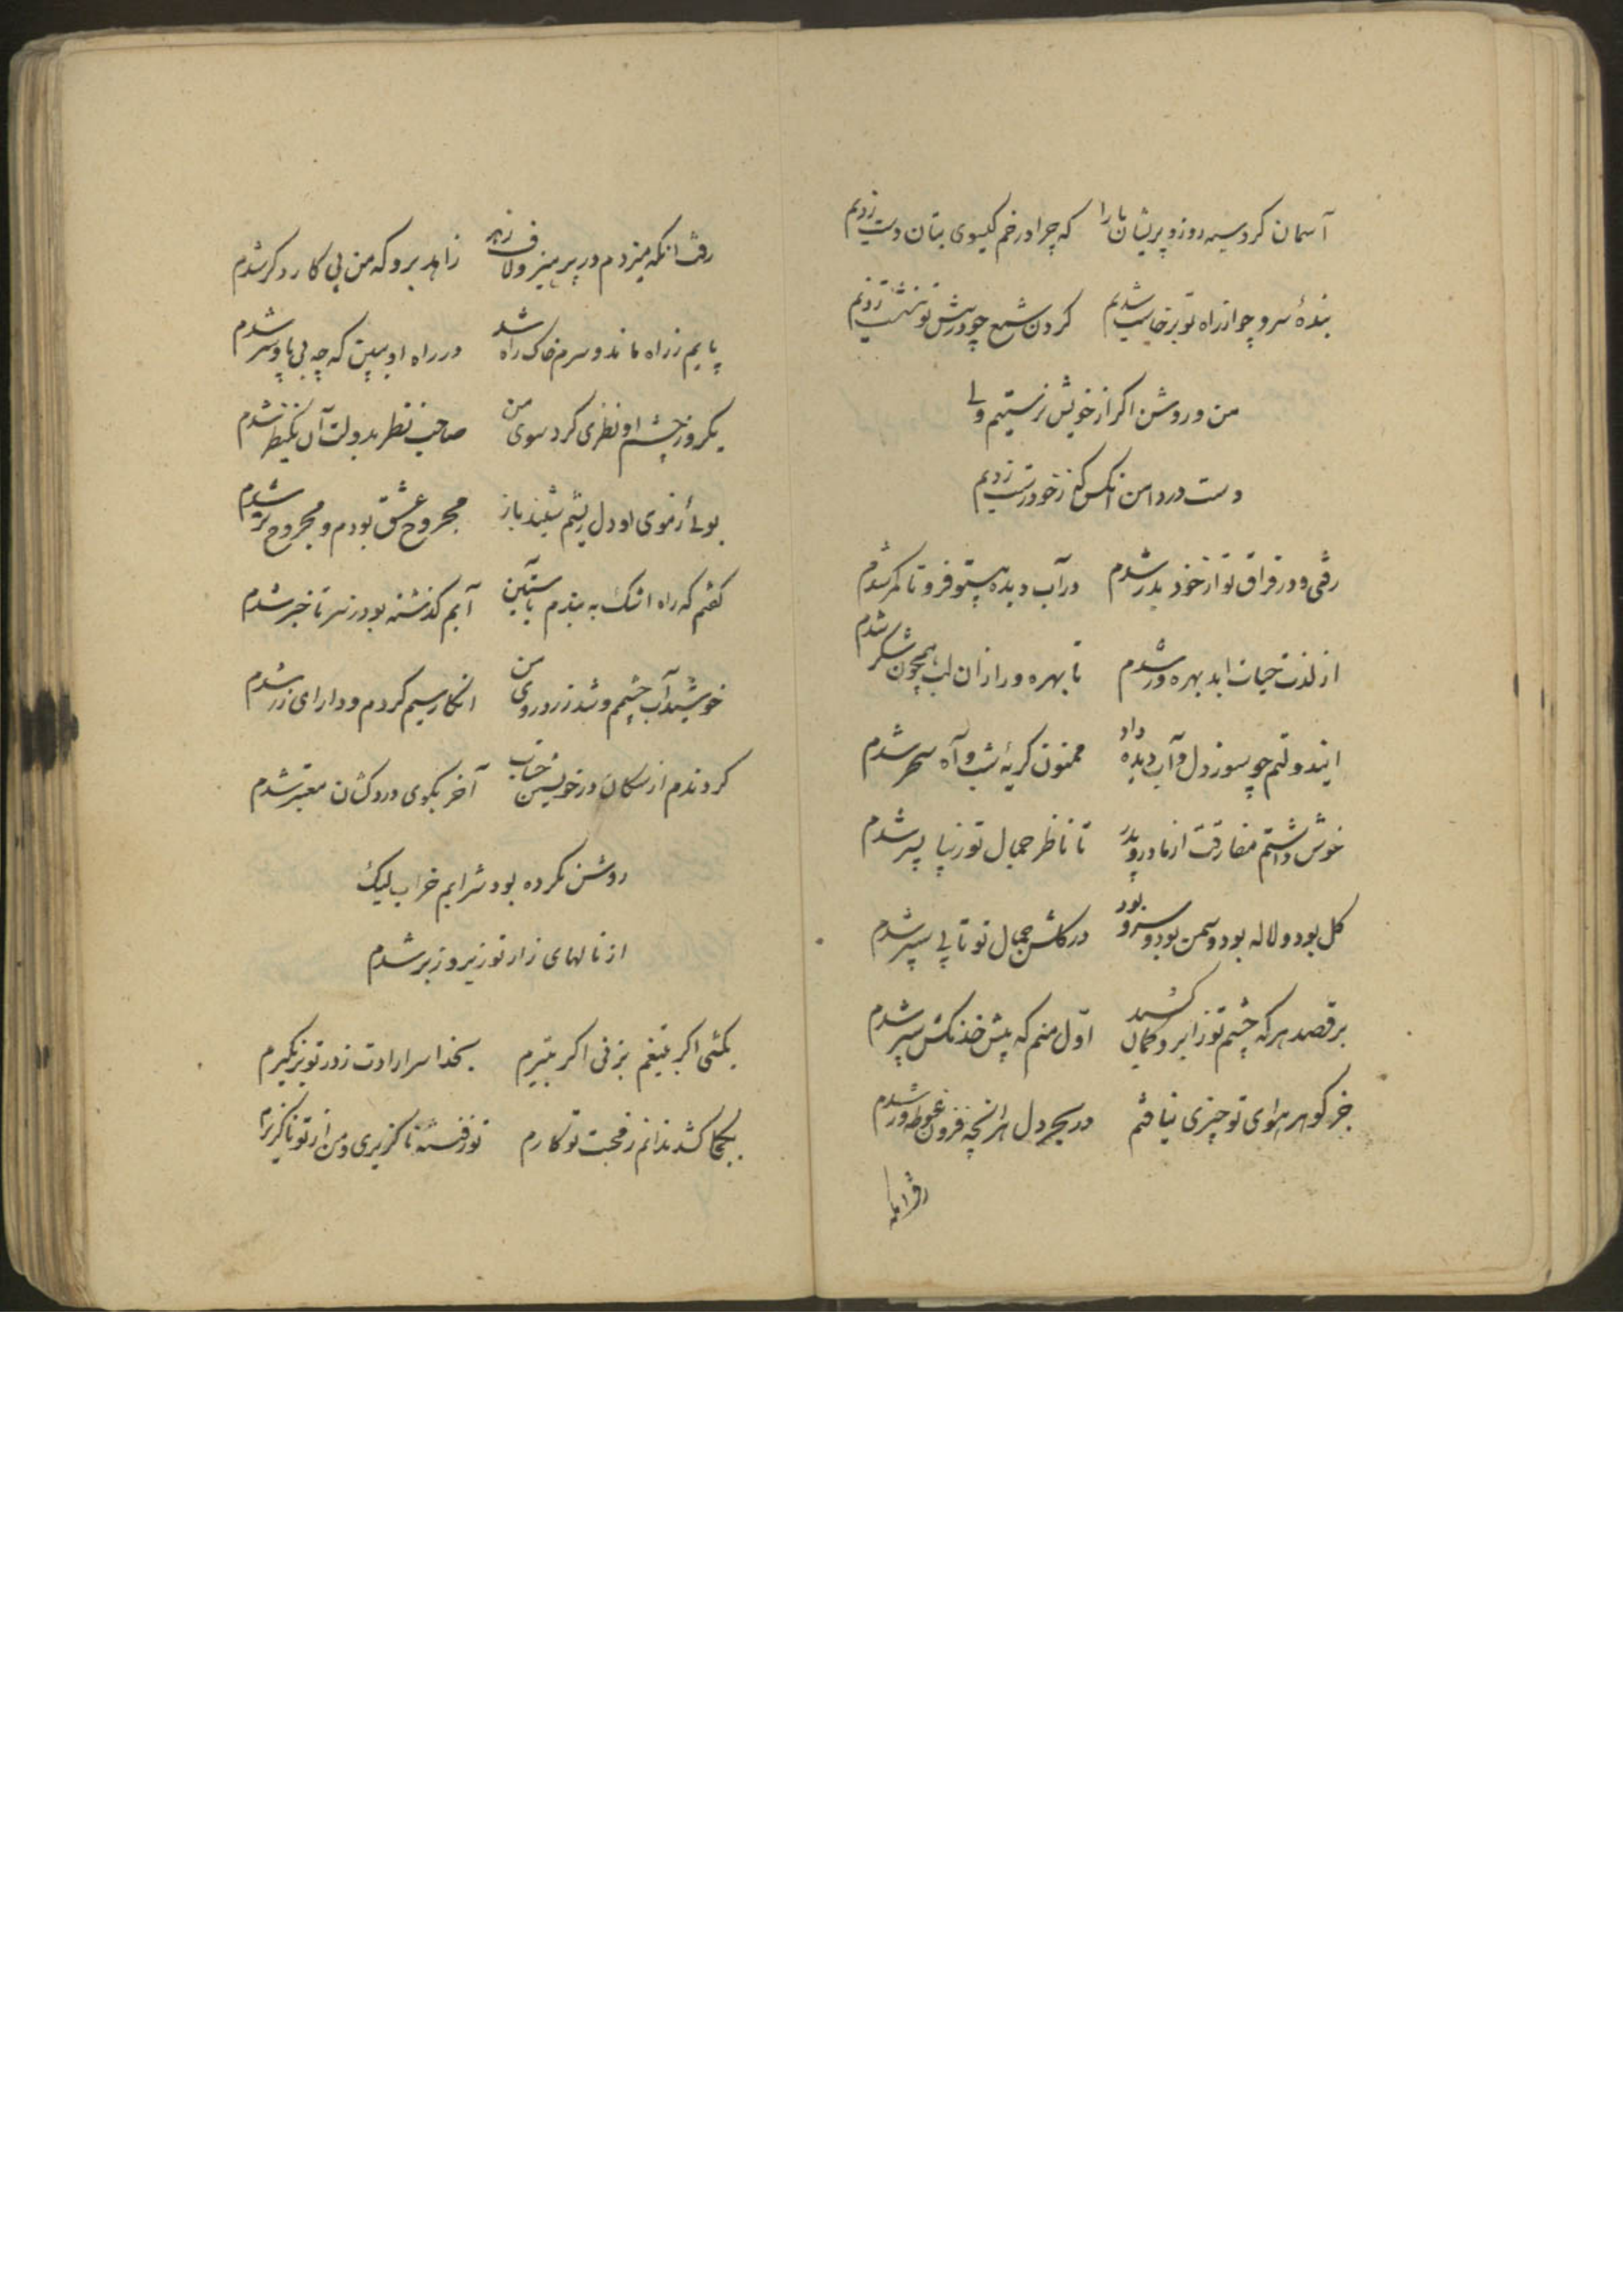 آسمان کرد سیه روز و پریشان ما را که چرا در خم کیسوی بتان دست زدیم
بندهٔ سرو چو از راه تو برخاست شدیم کردن شمع چو در پیش تو بنشست زدیم
من و روشن اکر از خویش نرستیم ولی
دست در دامن انکس که ز خود رست زدیم
رفتی و در فراق تو از خود بدر شدم در آب دیده بیتو فرو تا کمر شدم
از لذت حیات ابد بهره ور شدم تا بهره ور از ان لب همچون شکر شدم
ایندولتم چو سوز دل و آب دیده داد ممنون کریه شب و آه سحر شدم
خوش داشتم مفارقت از مادر و پدر تا ناظر جمال تو زیبا پسر شدم
کل بود و لاله بود و سمن بود و سرو بود در کلشن جمال تو تا پی سپر شدم
بر قصد هر که چشم تو ز ابرو کمان کشید اول منم که پیش خدنکش سپر شدم
جز کوهر هوای تو چیزی نیافتم در بحر دل هر انچه فزون غوطه ور شدم
رفت انکه
رفت انکه میزدم در پرهیز و لاف زهد زاهد برو که من پی کار دکر شدم
پایم ز راه ماند و سرم خاک راه شد در راه او ببین که چه بی پا و سر شدم
یکروز چشم او نظری کرد سوی من صاحب نظر بدولت آن یکنظر شدم
بوئی ز موی او دل ریشم شنید باز مجروح عشق بودم و مجروح تر شدم
کفتم که راه اشک به بندم باستین آبم کذشته بود ز سر تا خبر شدم
خوشید آب چشم و شد زرد روی من انکار سیم کردم و دارای زر شدم
کردندم از سکان در خویشتن حساب آخر بکوی دردکشان معتبر شدم
روشن نکرده بود شرابم خراب لیک
از نالهای زار تو زیر و زبر شدم
بکشی اکر بتیغم بزنی اکر بتیرم بخدا سر ارادت ز در تو بر نکیرم
بکجا کشد ندانم ز محبت تو کارم تو ز فتنه ناکزیری و من از تو ناکزیرم